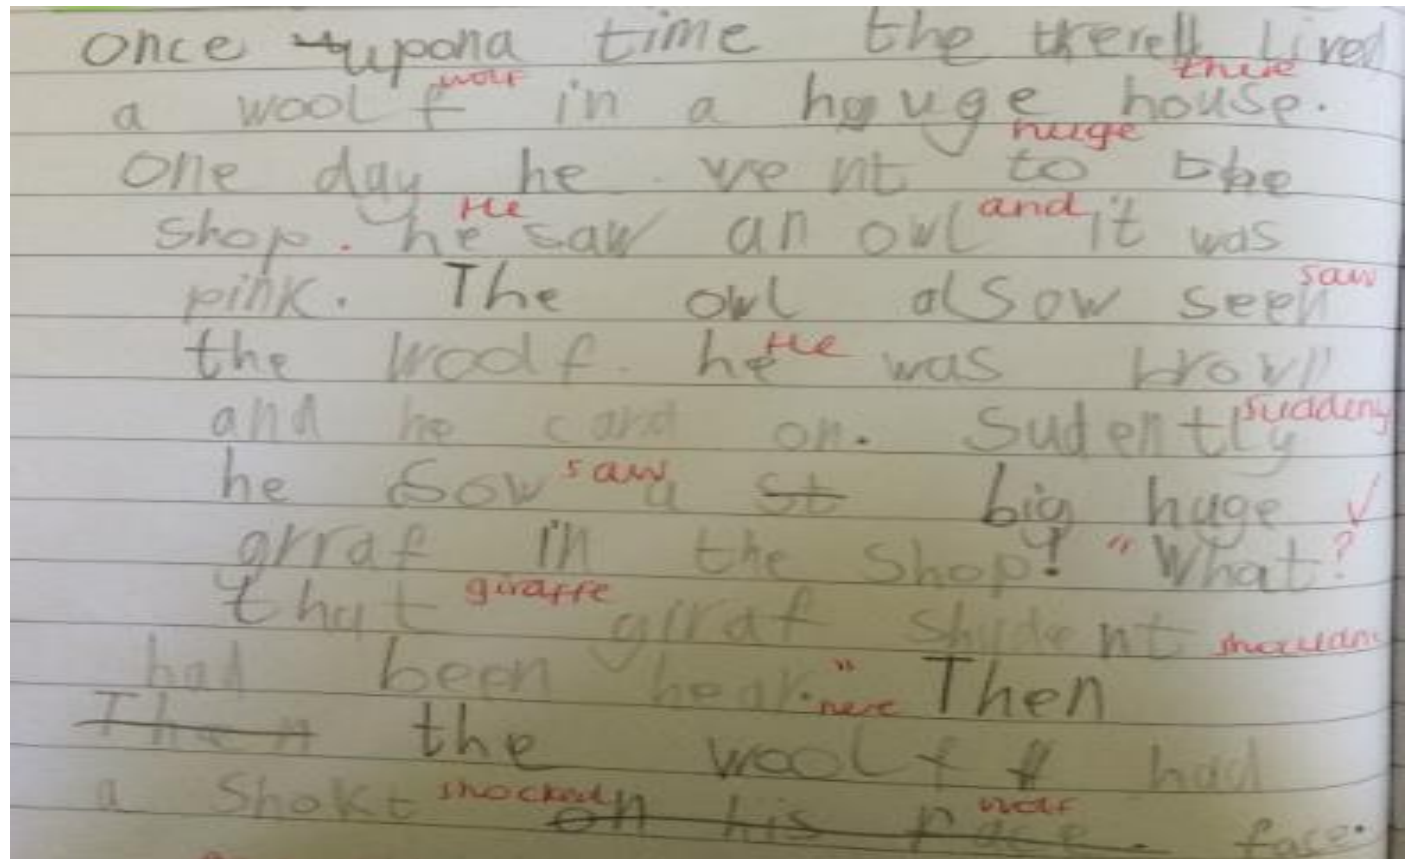 once upona time the therell Lived
a woolf wolf in a houge house. there
one day he went to the huge
shop. he He saw an owl and it was
pink. The owl alsow seen saw
the woolf. he He was brown
and he card on. Sudentlly suddenly
he sow saw a st big huge ✓
girraf in the shop! " What ?
that giraffe girraf shudent
had been hear." here Then
Then the woolf had
a Shokt shocked on his face. wolf face.